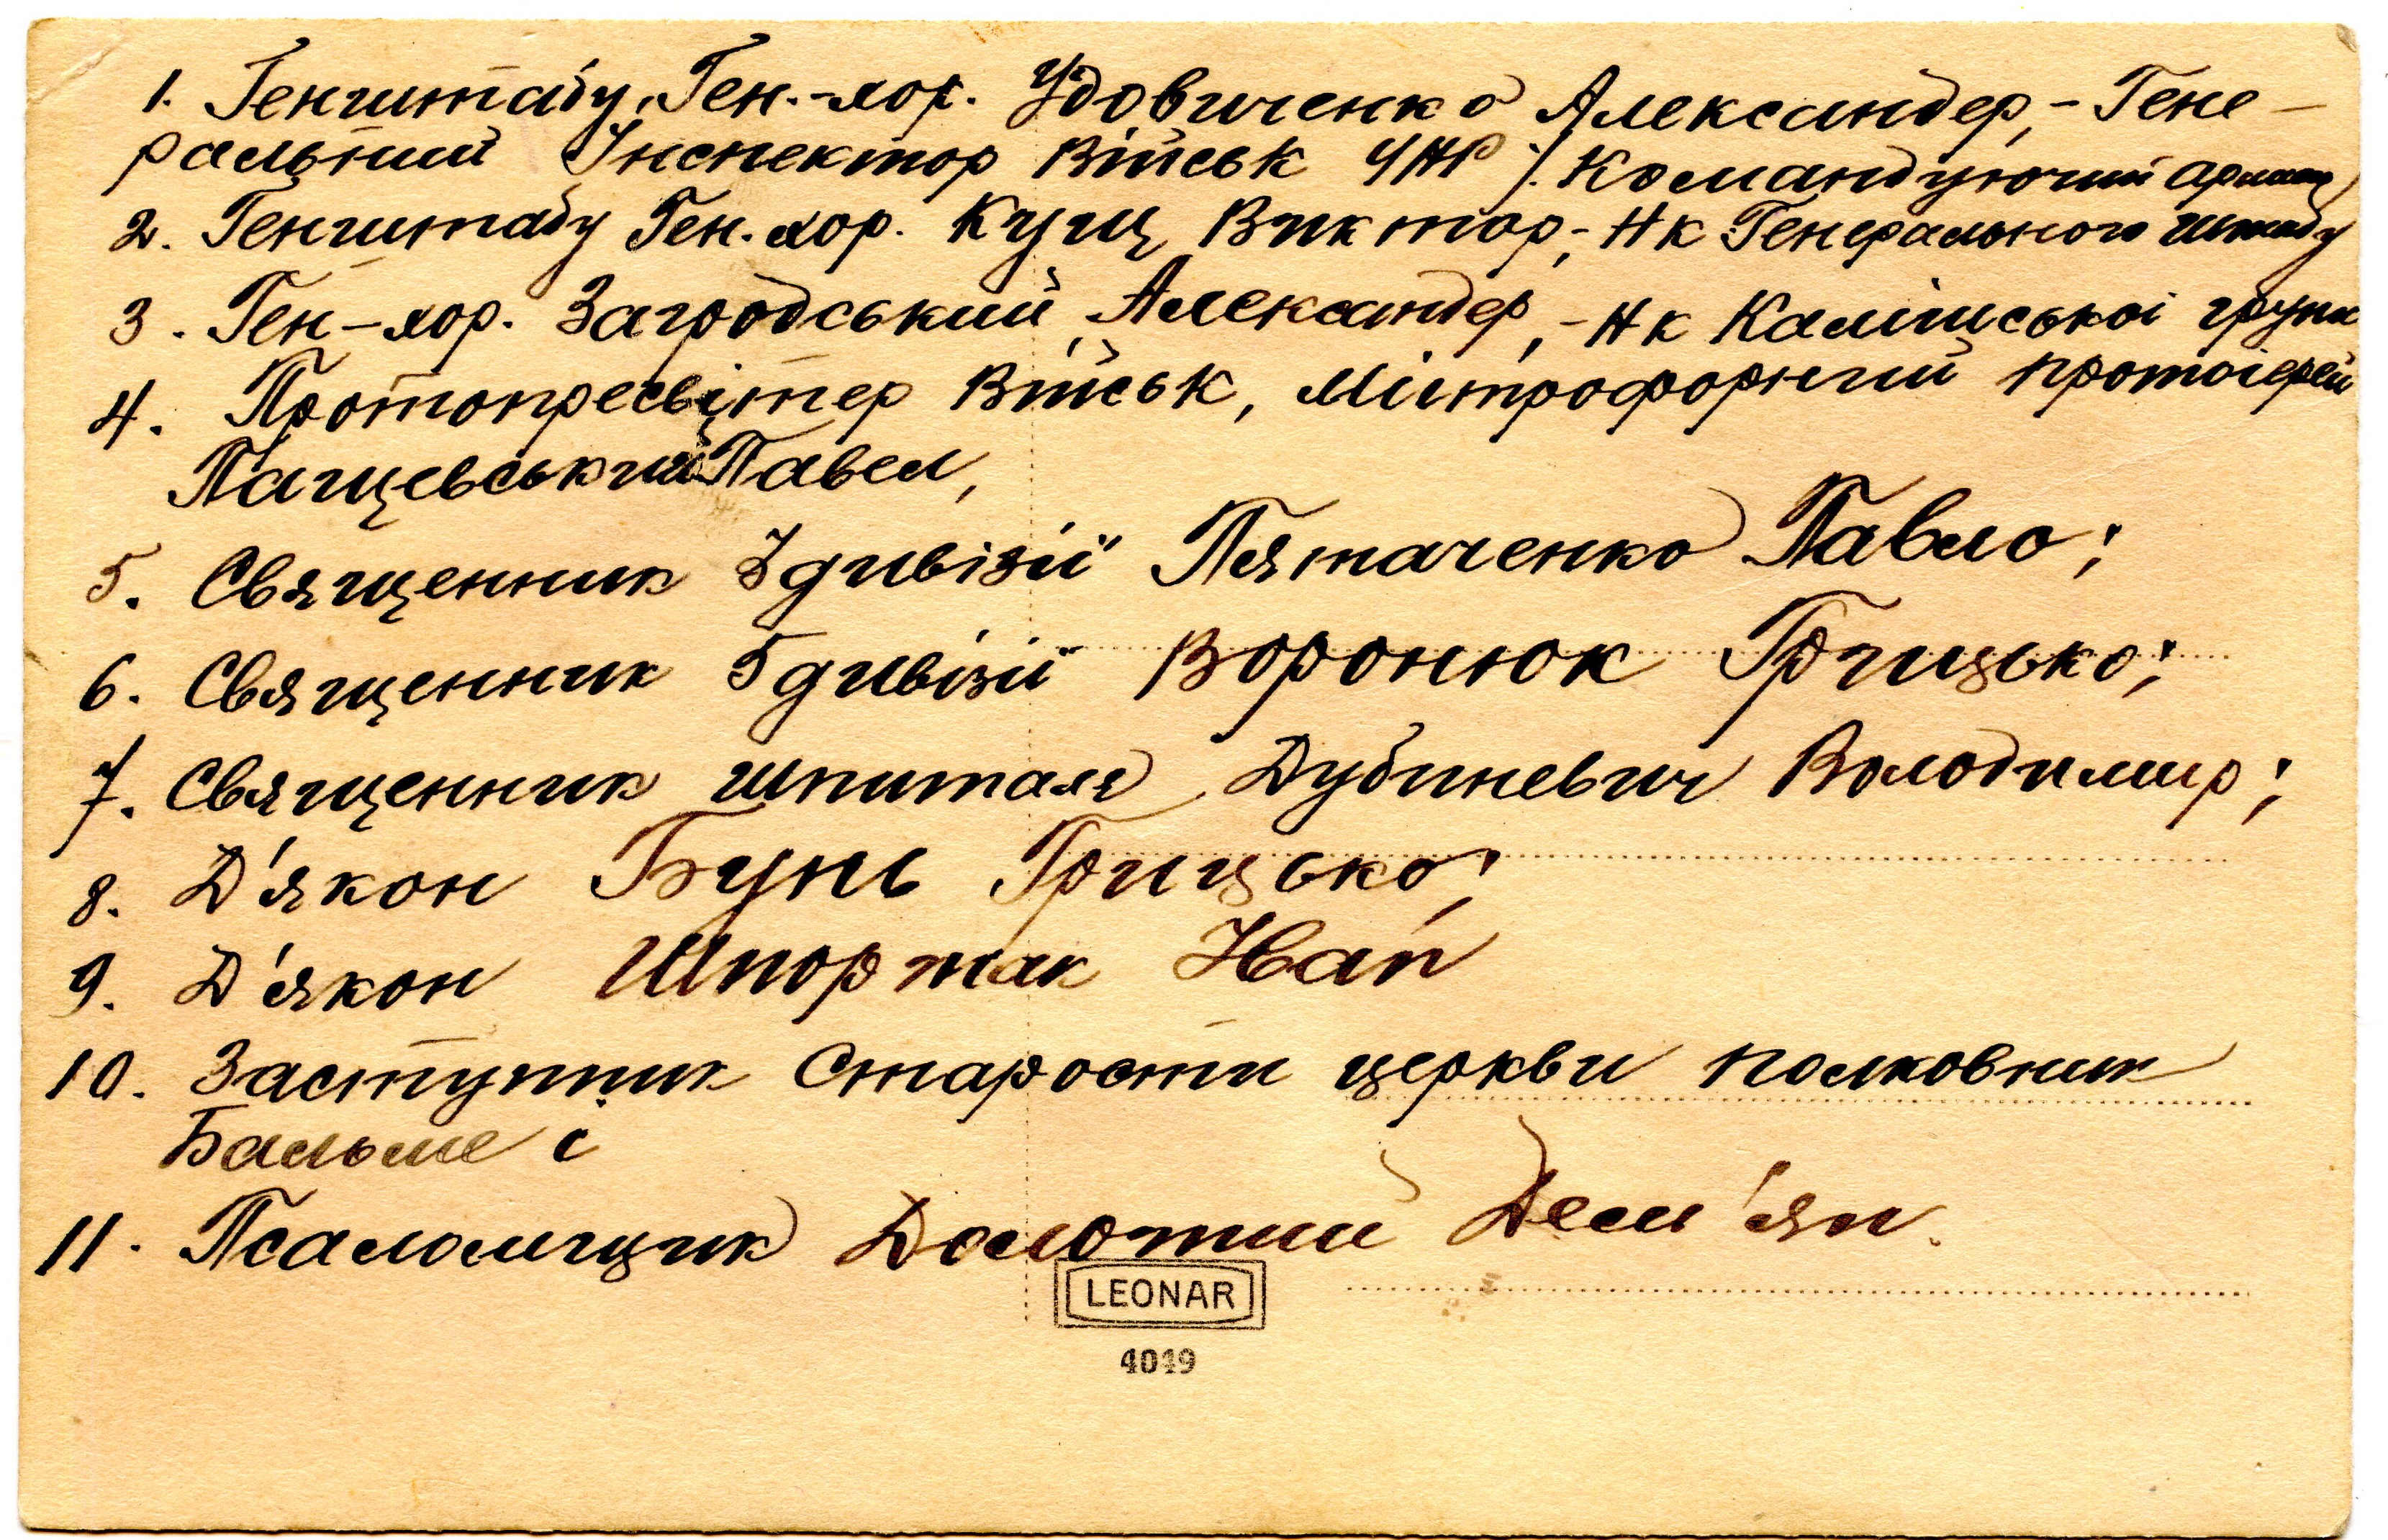 1. Генштабу, Ген.-хор. Удовиченко Александер, - Гене-
ральний Інспектор Військ УНР /. Командуючий Армією/
2. Генштабу Ген. хор. Кущ Виктор, - Нк Генерального штабу
3. Ген-хор. Загродський Александер, - Нк Калішської групи
4. Протопресвітер Військ, Мітрофорний протоієрей
Пащевський Павел,
5. Священник 3 дивізії Пятаченко Павло;
6. Священник 5 дивізії Воронюк Грицько;
7. Священник шпиталя Дубиневич Володимир;
8. Д'якон Бунь Грицько;
9. Д'якон Шпортак Иван
10. Заступник Старости церкви полковник
Бальме і
11. Псаломщик Долотий Дем'ян.
LEONAR
4049